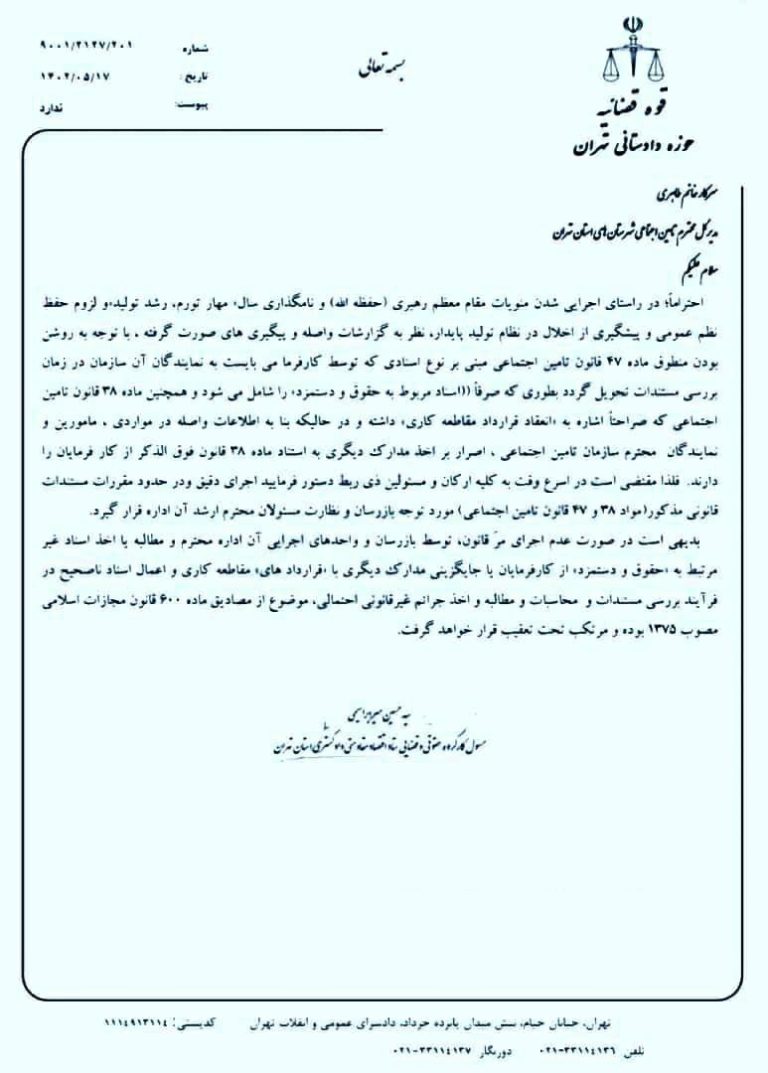 بسمه تعالی
قوه قضائیه
حوزه دادستانی تهران
شماره ۹۰۰۱/۲۱۲۷/۲۰۱
تاریخ: ۱۴۰۲/۰۵/۱۷
پیوست: ندارد
سرکار خانم طاهری
مدیر کل محترم تامین اجتماعی شهرستان های استان تهران
سلام علیکم
احتراماً؛ در راستای اجرایی شدن منویات مقام معظم رهبری (حفظه الله) و نامگذاری سال» مهار تورم، رشد تولید»و لزوم حفظ
نظم عمومی و پیشگیری از اخلال در نظام تولید پایدار، نظر به گزارشات واصله و پیگیری های صورت گرفته ، با توجه به روشن
بودن منطوق ماده ۴۷ قانون تامین اجتماعی مبنی بر نوع اسنادی که توسط کارفرما می بایست به نمایندگان آن سازمان در زمان
بررسی مستندات تحویل گردد بطوری که صرفاً ((اسناد مربوط به حقوق و دستمزد» را شامل می شود و همچنین ماده ۳۸ قانون تامین
اجتماعی که صراحتاً اشاره به «انعقاد قرارداد مقاطعه کاری» داشته و در حالیکه بنا به اطلاعات واصله در مواردی ، مامورین و
نمایندگان محترم سازمان تامین اجتماعی ، اصرار بر اخذ مدارک دیگری به استناد ماده ۳۸ قانون فوق الذکر از کار فرمایان را
دارند. فلذا مقتضی است در اسرع وقت به کلیه ارکان و مسئولین ذی ربط دستور فرمایید اجرای دقیق ودر حدود مقررات مستندات
قانونی مذکور(مواد ۳۸ و ۴۷ قانون تامین اجتماعی) مورد توجه بازرسان و نظارت مسئولان محترم ارشد آن اداره قرار گیرد.
بدیهی است در صورت عدم اجرای مرّ قانون، توسط بازرسان و واحدهای اجرایی آن اداره محترم و مطالبه یا اخذ اسناد غیر
مرتبط به «حقوق و دستمزد» از کارفرمایان یا جایگزینی مدارک دیگری با «قرارداد های» مقاطعه کاری و اعمال اسناد ناصحیح در
فرآیند بررسی مستندات و محاسبات و مطالبه و اخذ جرائم غیرقانونی احتمالی، موضوع از مصادیق ماده ۶۰۰ قانون مجازات اسلامی
مصوب ۱۳۷۵ بوده و مرتکب تحت تعقیب قرار خواهد گرفت.
حسین
مسول کارگروه حقوقی و قضایی ستاد اقتصاد مقاومتی دادگستری استان تهران
تهران، خیابان خیام، نبش میدان پانزده خرداد، دادسرای عمومی و انقلاب تهران کدپستی: ۱۱۱۴۹۱۳۱۱۴
تلفن ۳۳۱۱۴۱۳۶-۰۲۱ دورنگار ۳۳۱۱۴۱۳۷-۰۲۱